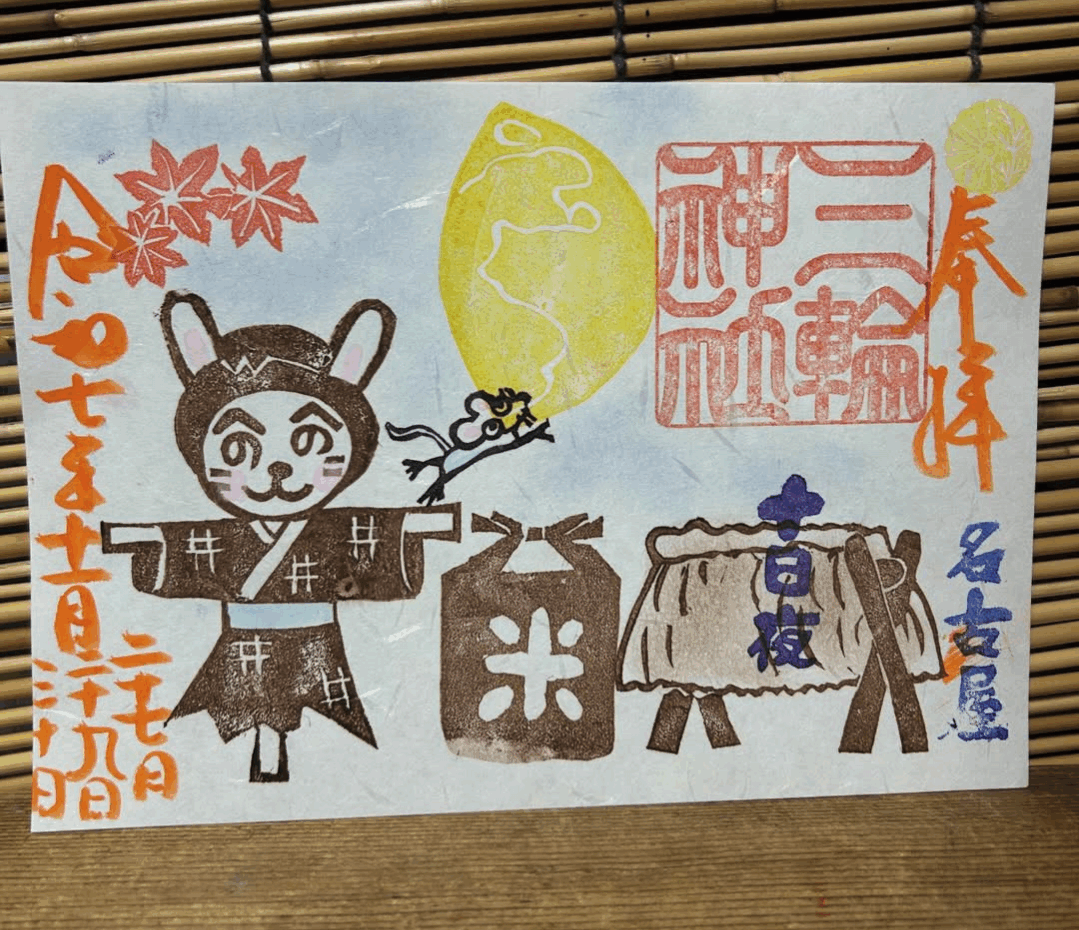 奉拝
名古屋
三輪
神社
十日夜
米
のの
令和七年十一月
二十七日
二十九日
三十日